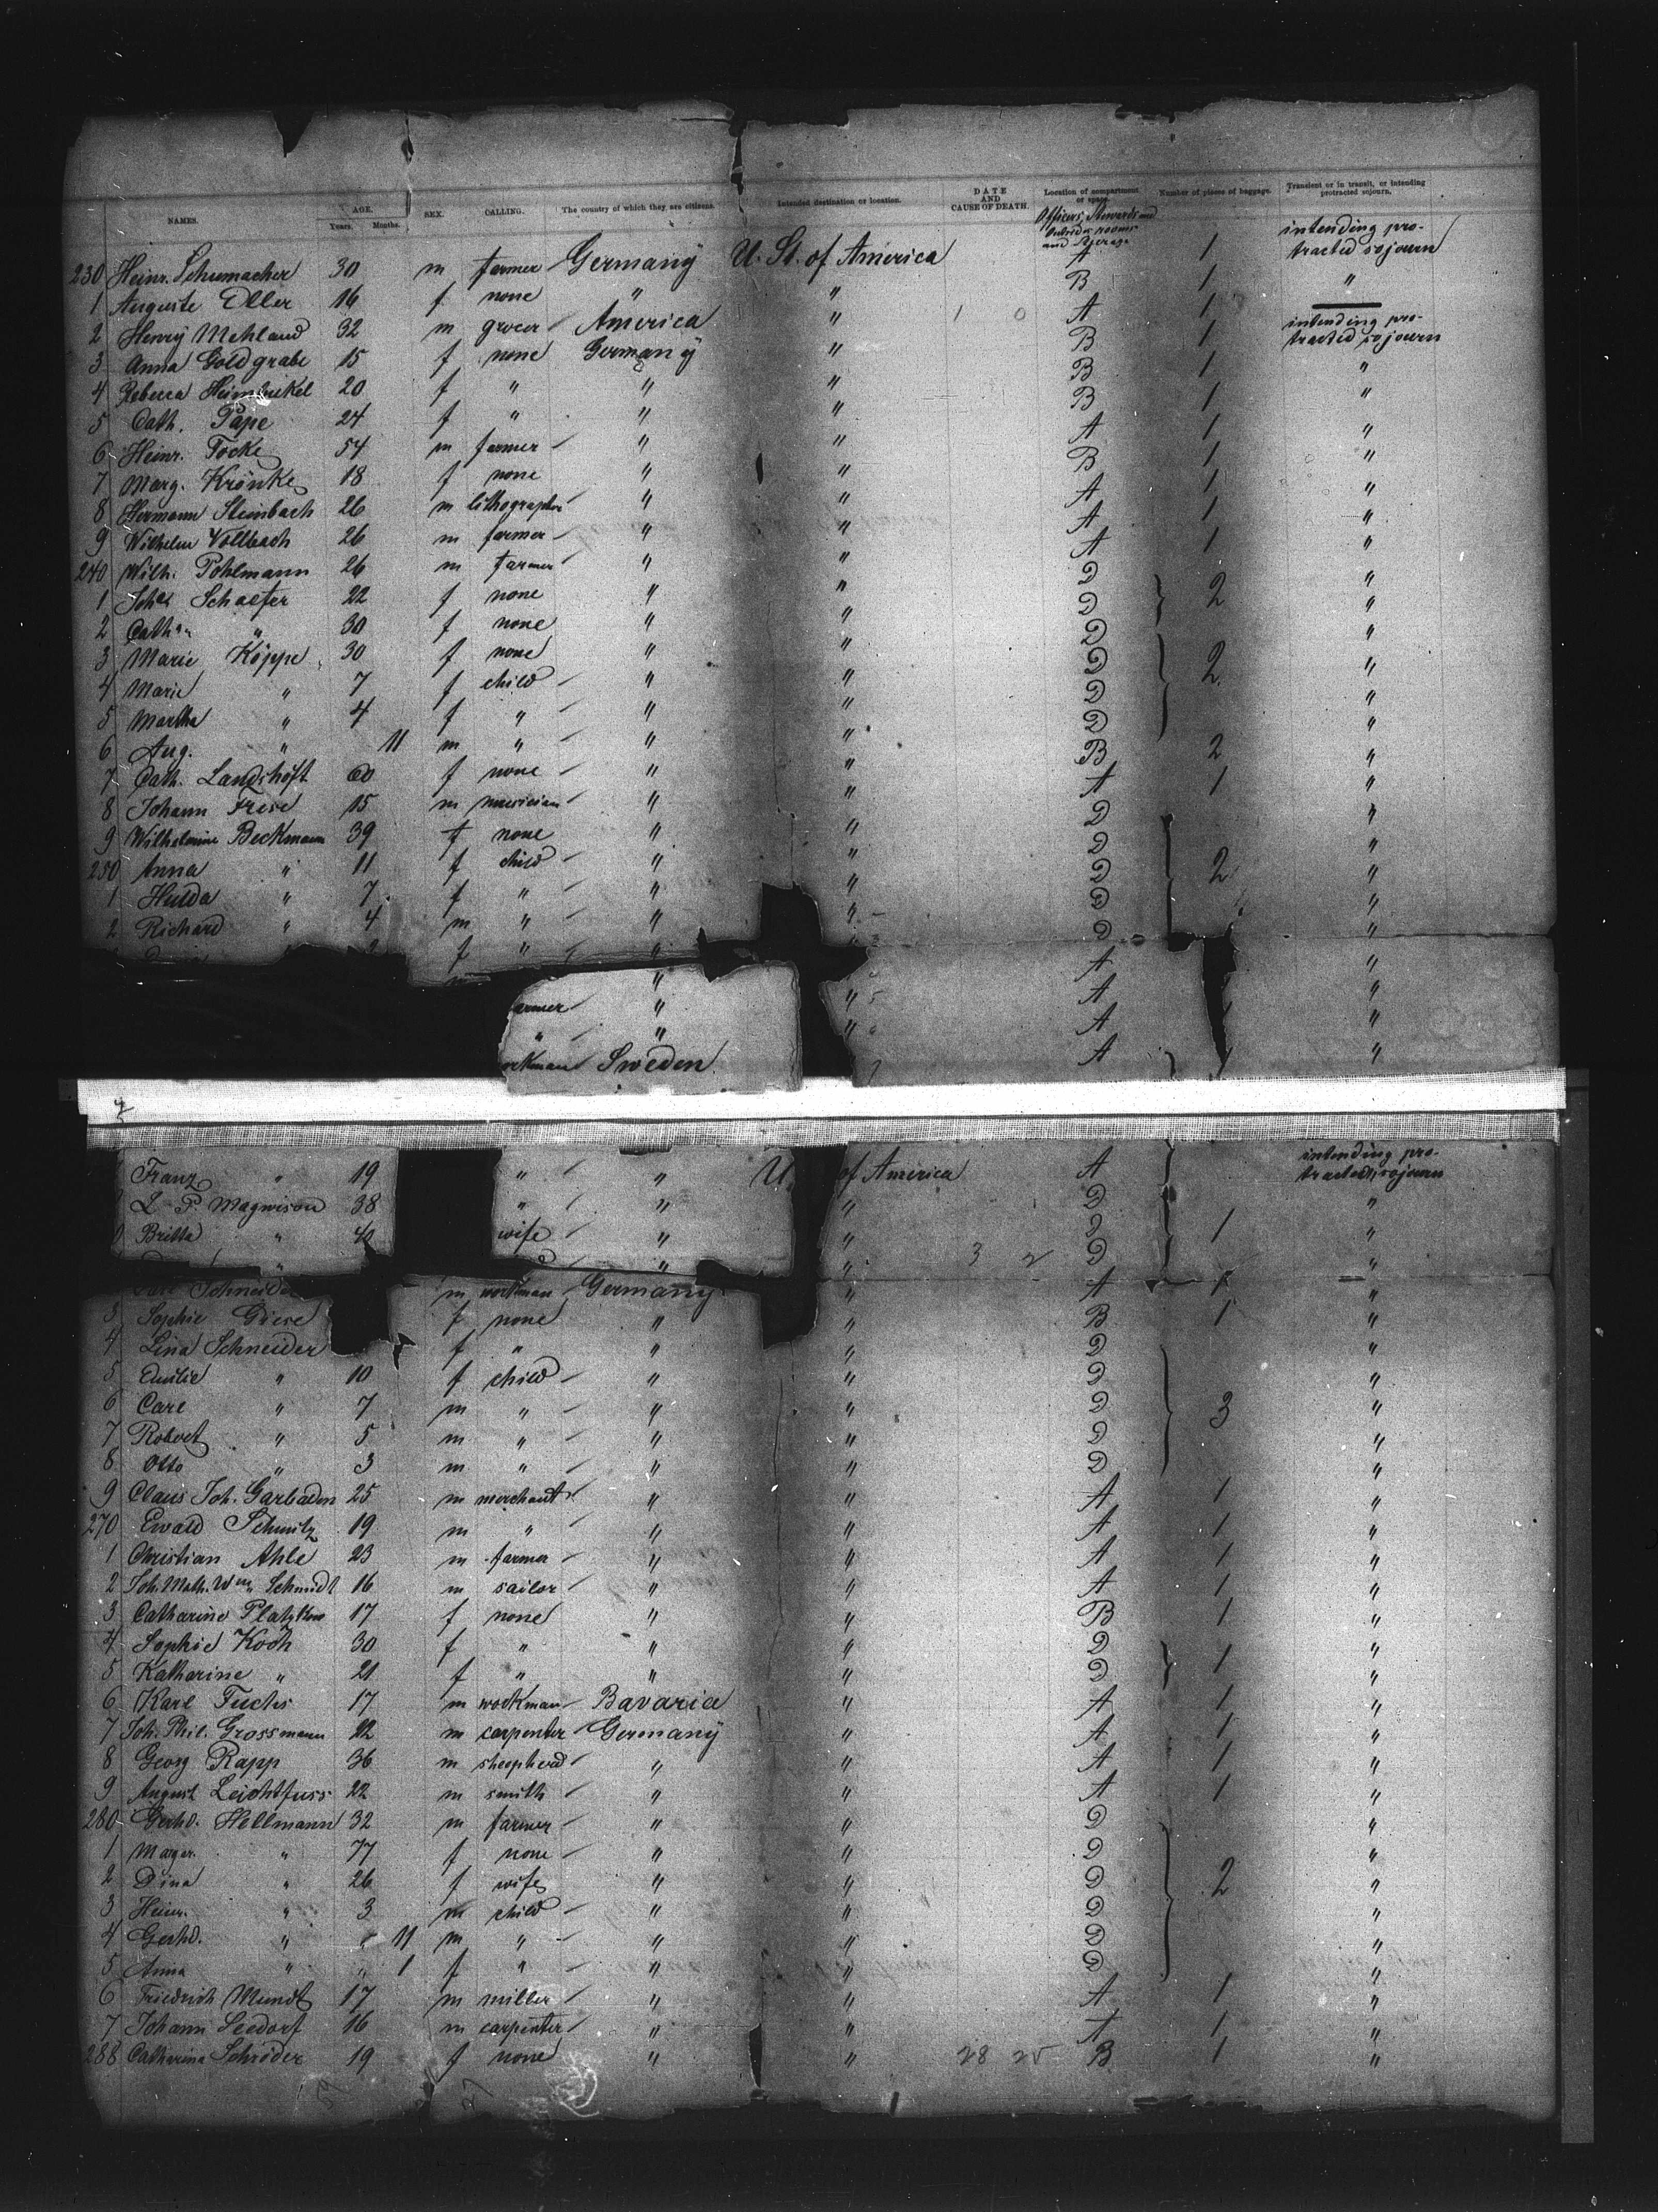 NAMES. AGE. Years. Months. SEX. CALLING. The country of which they are citizens. Intended destination or location. DATE AND CAUSE OF DEATH. Location of compartment or space. Number of pieces of baggage. Transient or in transit, or intending protracted sojourn.
Officers, Stewards and
and Steerage
230 Heinr. Schumacher 30 m farmer Germany U. St. of America A 1 intending protracted sojourn
1 Auguste Eller 16 f none " " B 1 "
2 Henry Mehland 32 m grocer America " A 1 —
3 Anna Goldgrabe 15 f none Germany " B 1 intending protracted sojourn
4 Rebecca Heimbuckel 20 f " " " B 1 "
5 Cath. Pape 24 f " " " B 1 "
6 Heinr. Tocke 54 m farmer " " A 1 "
7 Marg. Krönke 18 f none " " B 1 "
8 Hermann Steinbach 26 m lithographer " " A 1 "
9 Wilhelm Vollbach 26 m farmer " " A 1 "
240 Wilh. Pohlmann 26 m farmer " " A 1 "
1 Joha Schaefer 22 f none " " D 2 "
2 Cath. " 30 f none " " D "
3 Marie Köppe 30 f none " " D 2 "
4 Marie " 7 f child " " D "
5 Martha " 4 f " " " D "
6 Aug. " 11 m " " " D "
7 Cath. Landshöft 60 f none " " B 2 "
8 Johann Frese 15 m musician " " A 1 "
9 Wilhelmine Beckmann 39 f none " " D 2 "
250 Anna " 11 f child " " D "
1 Hulda " 7 f " " " D "
2 Richard " 4 m " " " D "
" 2 f " " " D "
" " A "
armer " " A "
" " " A "
orkman Sweden A "
Franz " 19 " " U. of America A intending protracted sojourn
L. P. Magnison 38 " " " D 1 "
Britta " 40 wife " " D "
" " " D "
Schneider m workman Germany " A 1 "
3 Sophie Giese f none " " B 1 "
4 Lina Schneider f " " " D 3 "
5 Emilie " 10 f child " " D "
6 Carl " 7 m " " " D "
7 Robert " 5 m " " " D "
8 Otto " 3 m " " " D "
9 Claus Joh. Garbaden 25 m merchant " " A 1 "
270 Ewald Schmitz 19 m " " " A 1 "
1 Christian Ahle 23 m farmer " " A 1 "
2 Joh. Math. Wm. Schmidt 16 m sailor " " A 1 "
3 Catharine Platzkow 17 f none " " B 1 "
4 Sophie Koch 30 f " " " D 1 "
5 Katharine " 21 f " " " D "
6 Karl Fuchs 17 m workman Bavaria " A 1 "
7 Joh. Phil. Grossmann 22 m carpenter Germany " A 1 "
8 Georg Rapp 36 m sheepherd " " A 1 "
9 August Leichtfuss 22 m smith " " A 1 "
280 Gerhd. Hellmann 32 m farmer " " D 2 "
1 Margar. " 77 f none " " D "
2 Dina " 26 f wife " " D "
3 Heinr. " 3 m child " " D "
4 Gerhd. " " 11 m " " " D "
5 Anna " " 1 f " " " D "
6 Friedrich Mundt 17 m miller " " A 1 "
7 Johann Seedorf 16 m carpenter " " A 1 "
288 Catharina Schröder 19 f none " " 28 25 B 1 "